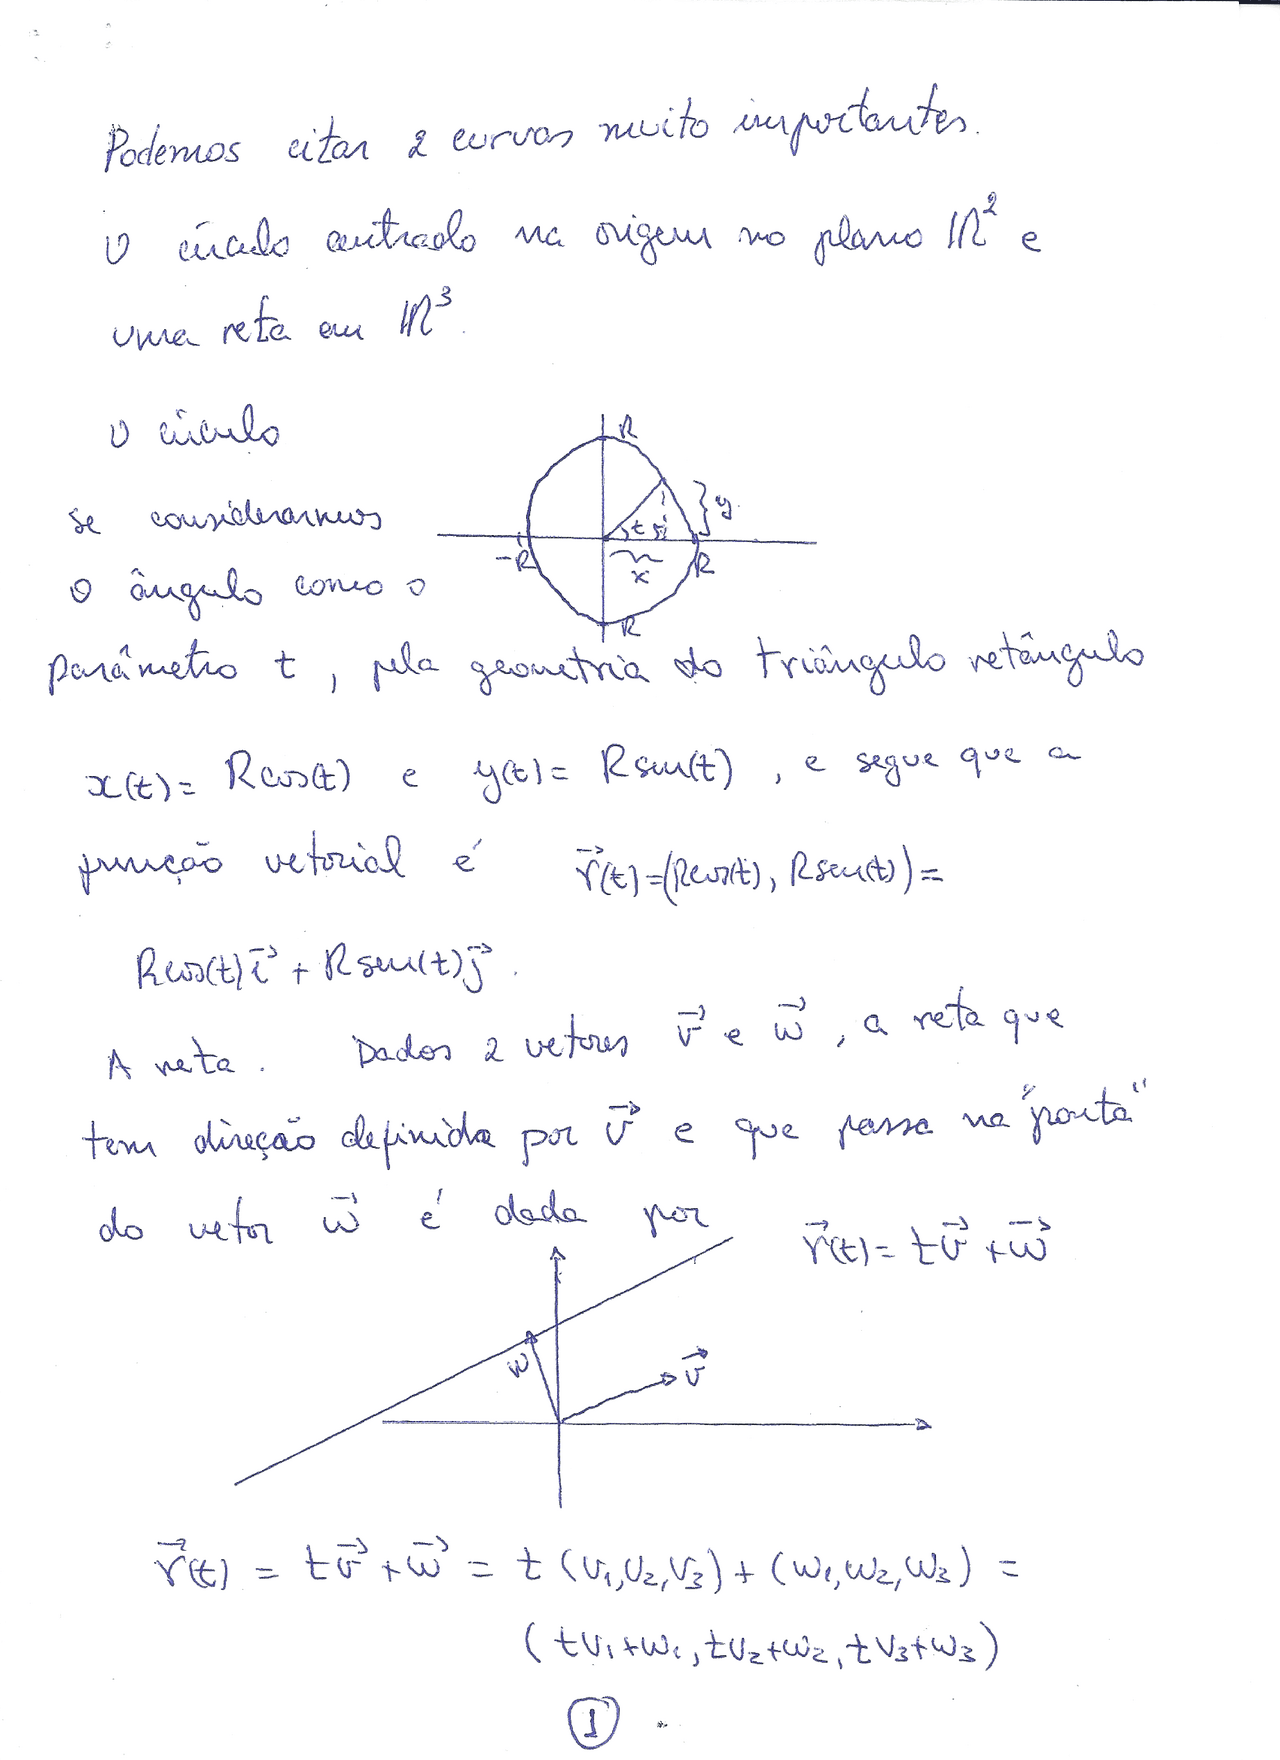 Podemos citar 2 curvas muito importantes.
O círculo centrado na origem no plano ℝ² e
uma reta em ℝ³.
O círculo
R
se considerarmos
t
y
-R
x
R
o ângulo como o
R
parâmetro t, pela geometria do triângulo retângulo
x(t) = Rcos(t) e y(t) = Rsen(t), e segue que a
função vetorial é r⃗(t) = (Rcos(t), Rsen(t)) =
Rcos(t)i⃗ + Rsen(t)j⃗.
A reta. Dados 2 vetores v⃗ e w⃗, a reta que
tem direção definida por v⃗ e que passa na "ponta"
do vetor w⃗ é dada por r⃗(t) = tv⃗ + w⃗
w
v⃗
r⃗(t) = tv⃗ + w⃗ = t(v₁,v₂,v₃) + (w₁,w₂,w₃) =
(tv₁+w₁, tv₂+w₂, tv₃+w₃)
1